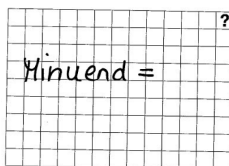 ?
Minuend =